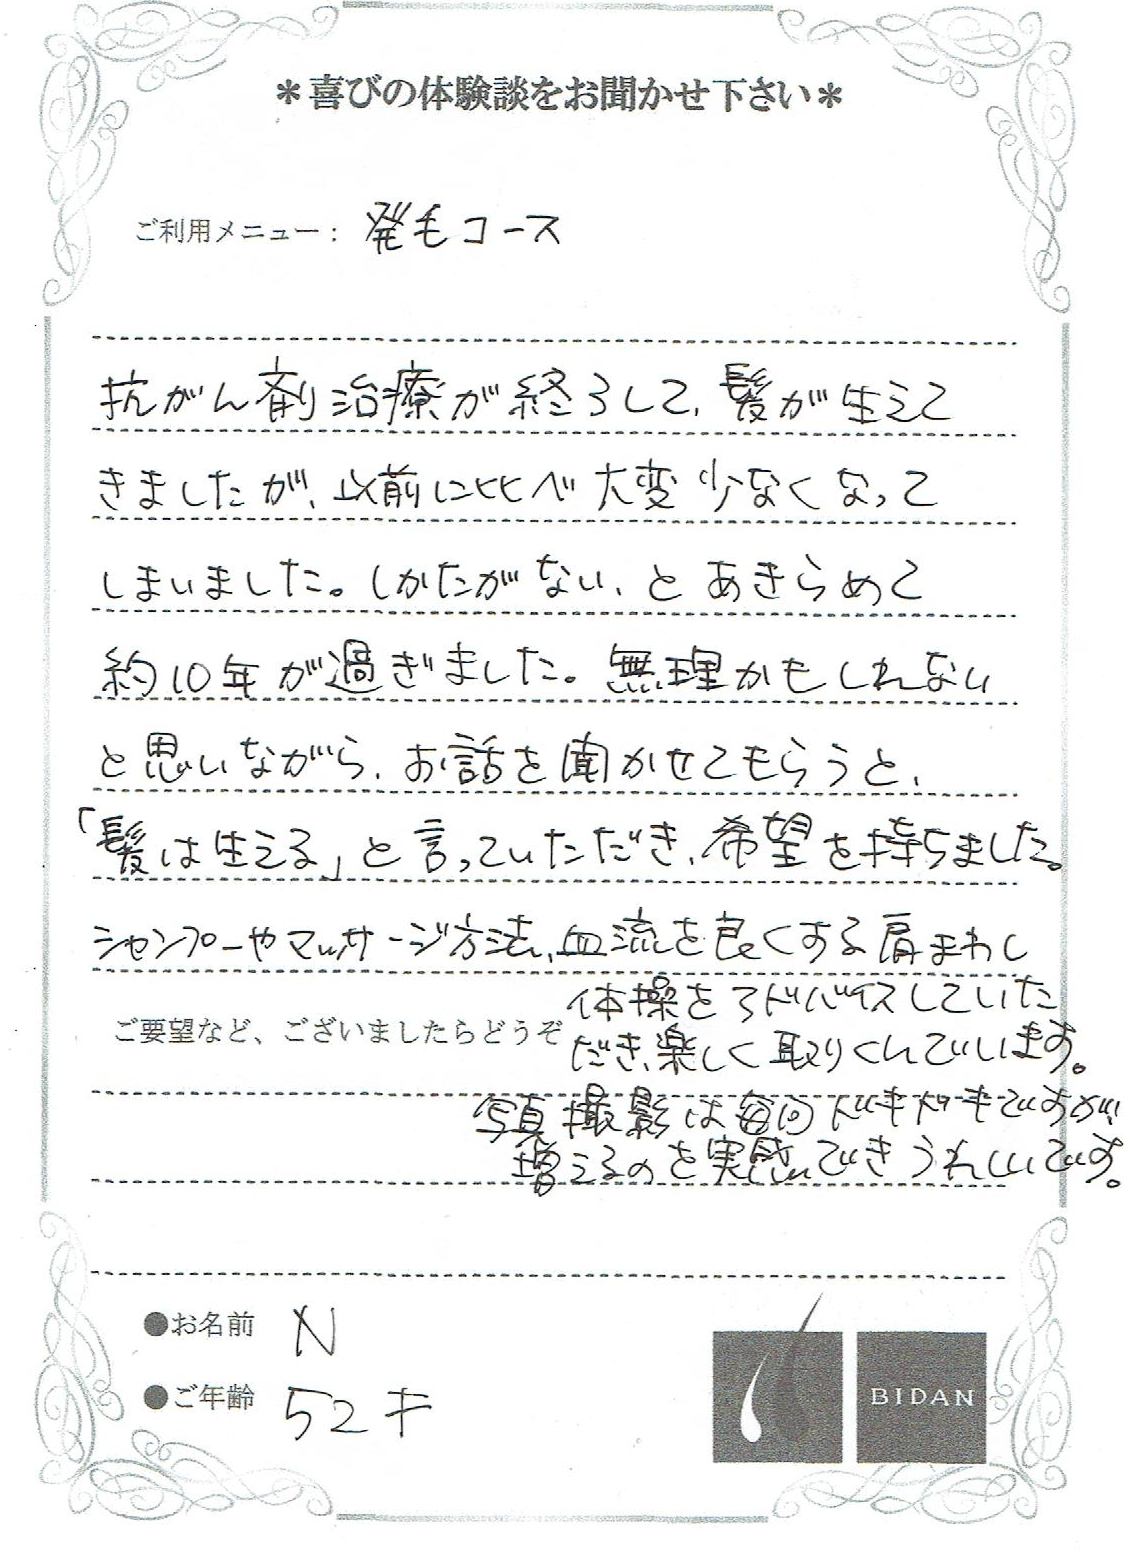 ＊喜びの体験談をお聞かせ下さい＊
ご利用メニュー： 発毛コース
抗がん剤治療が終了して、髪が生えて
きましたが、以前に比べ大変少なくなって
しまいました。しかたがない、とあきらめて
約10年が過ぎました。無理かもしれない
と思いながら、お話を聞かせてもらうと、
「髪は生える」と言っていただき、希望を持ちました。
シャンプーやマッサージ方法、血流を良くする肩まわし
体操をアドバイスしていた
ご要望など、ございましたらどうぞ
だき、楽しく取りくんでいます。
写真撮影は毎回ドキドキですが、
増えるのを実感できうれしいです。
●お名前 N
●ご年齢 52才
BIDAN